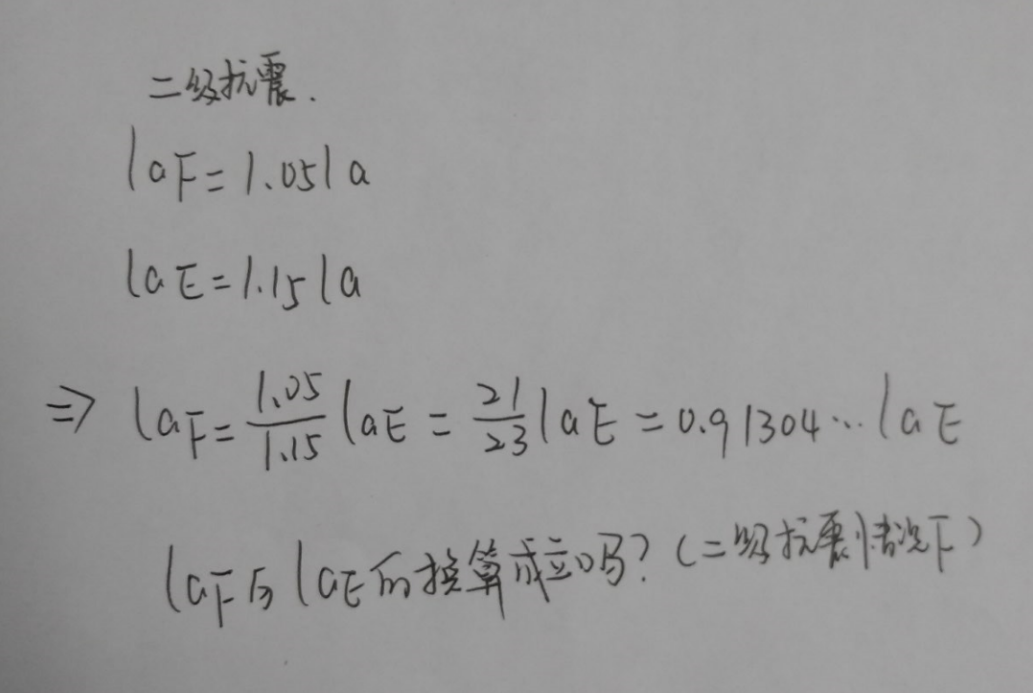 二级抗震.
laF=1.05la
laE=1.15la
⇒ laF=1.05/1.15 laE=21/23 laE=0.91304…laE
laF与laE的换算成立吗?(二级抗震情况下)